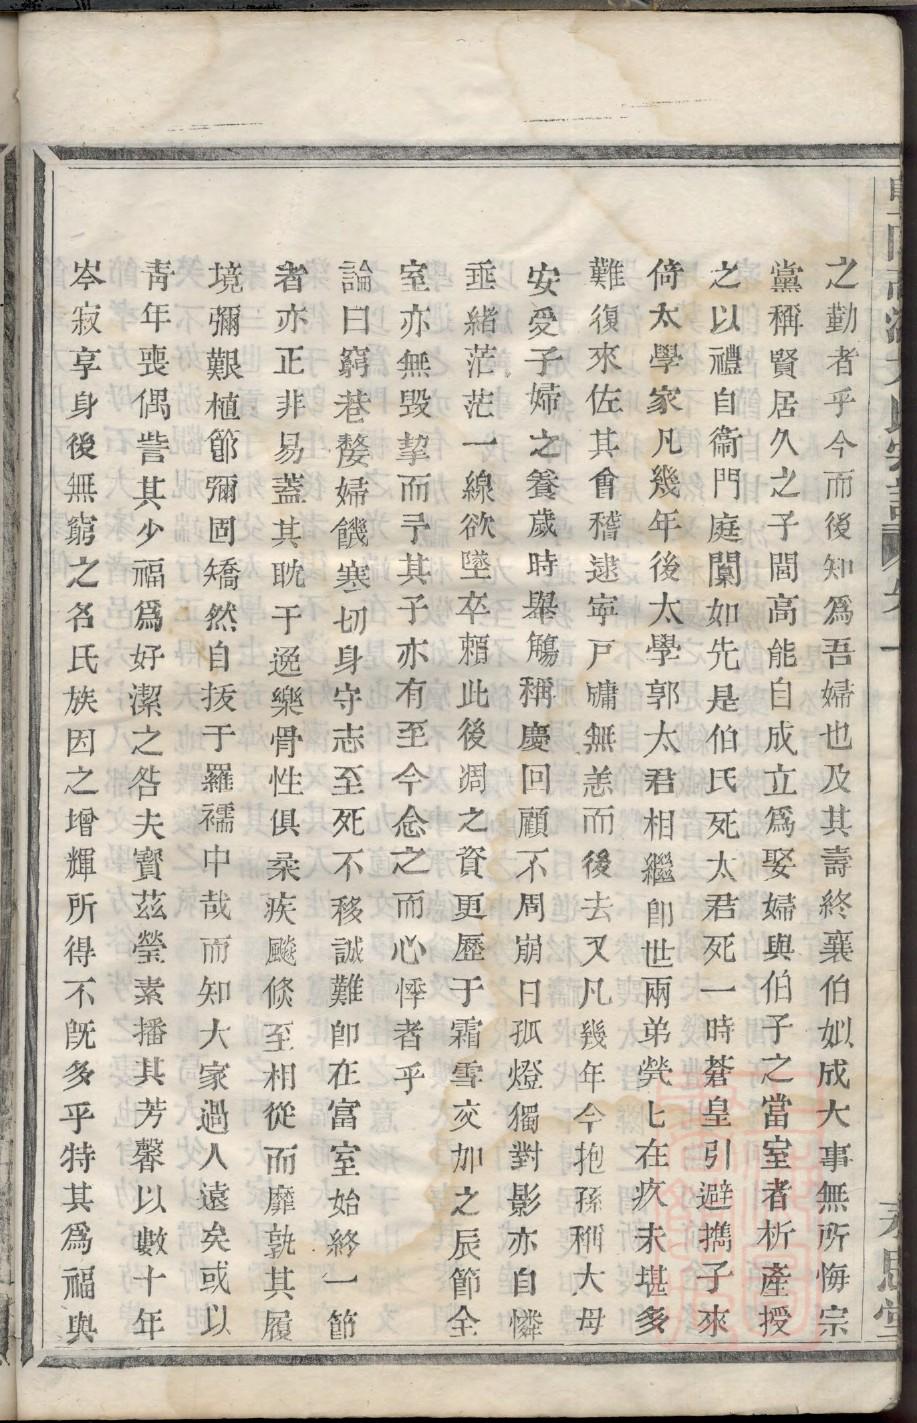 之勤者乎今而後知爲吾婦也及其壽終襄伯姒成大事無所悔宗
黨稱賢居久之子閭高能自成立爲娶婦與伯子之當室者析產授
之以禮自衞門庭闃如先是伯氏死太君死一時蒼皇引避擕子來
倚太學家凡幾年後太學郭太君相繼卽世兩弟煢匕在疚未堪多
難復來佐其會稽逮寕戸牗無恙而後去又凡幾年今抱孫稱大母
安受子婦之養歲時舉觴稱慶回顧不周崩日孤燈獨對影亦自憐
乖緒茫茫一線欲墜卒頼此後凋之資更歷于霜雪交加之辰節全
室亦無毀挐而予其子亦有至今念之而心悸者乎
論曰窮巷嫠婦饑寒切身守志至死不移誠難卽在富室始終一節
者亦正非易葢其耽于逸樂骨性俱柔疾颷倐至相從而靡孰其履
境彌艱植節彌固矯然自拔于羅襦中哉而知大家過人遠矣或以
靑年喪偶訾其少福爲好潔之咎夫寳茲瑩素播其芳馨以數十年
岑寂享身後無窮之名氏族因之增輝所得不旣多乎特其爲福與
氏宗譜
永思堂